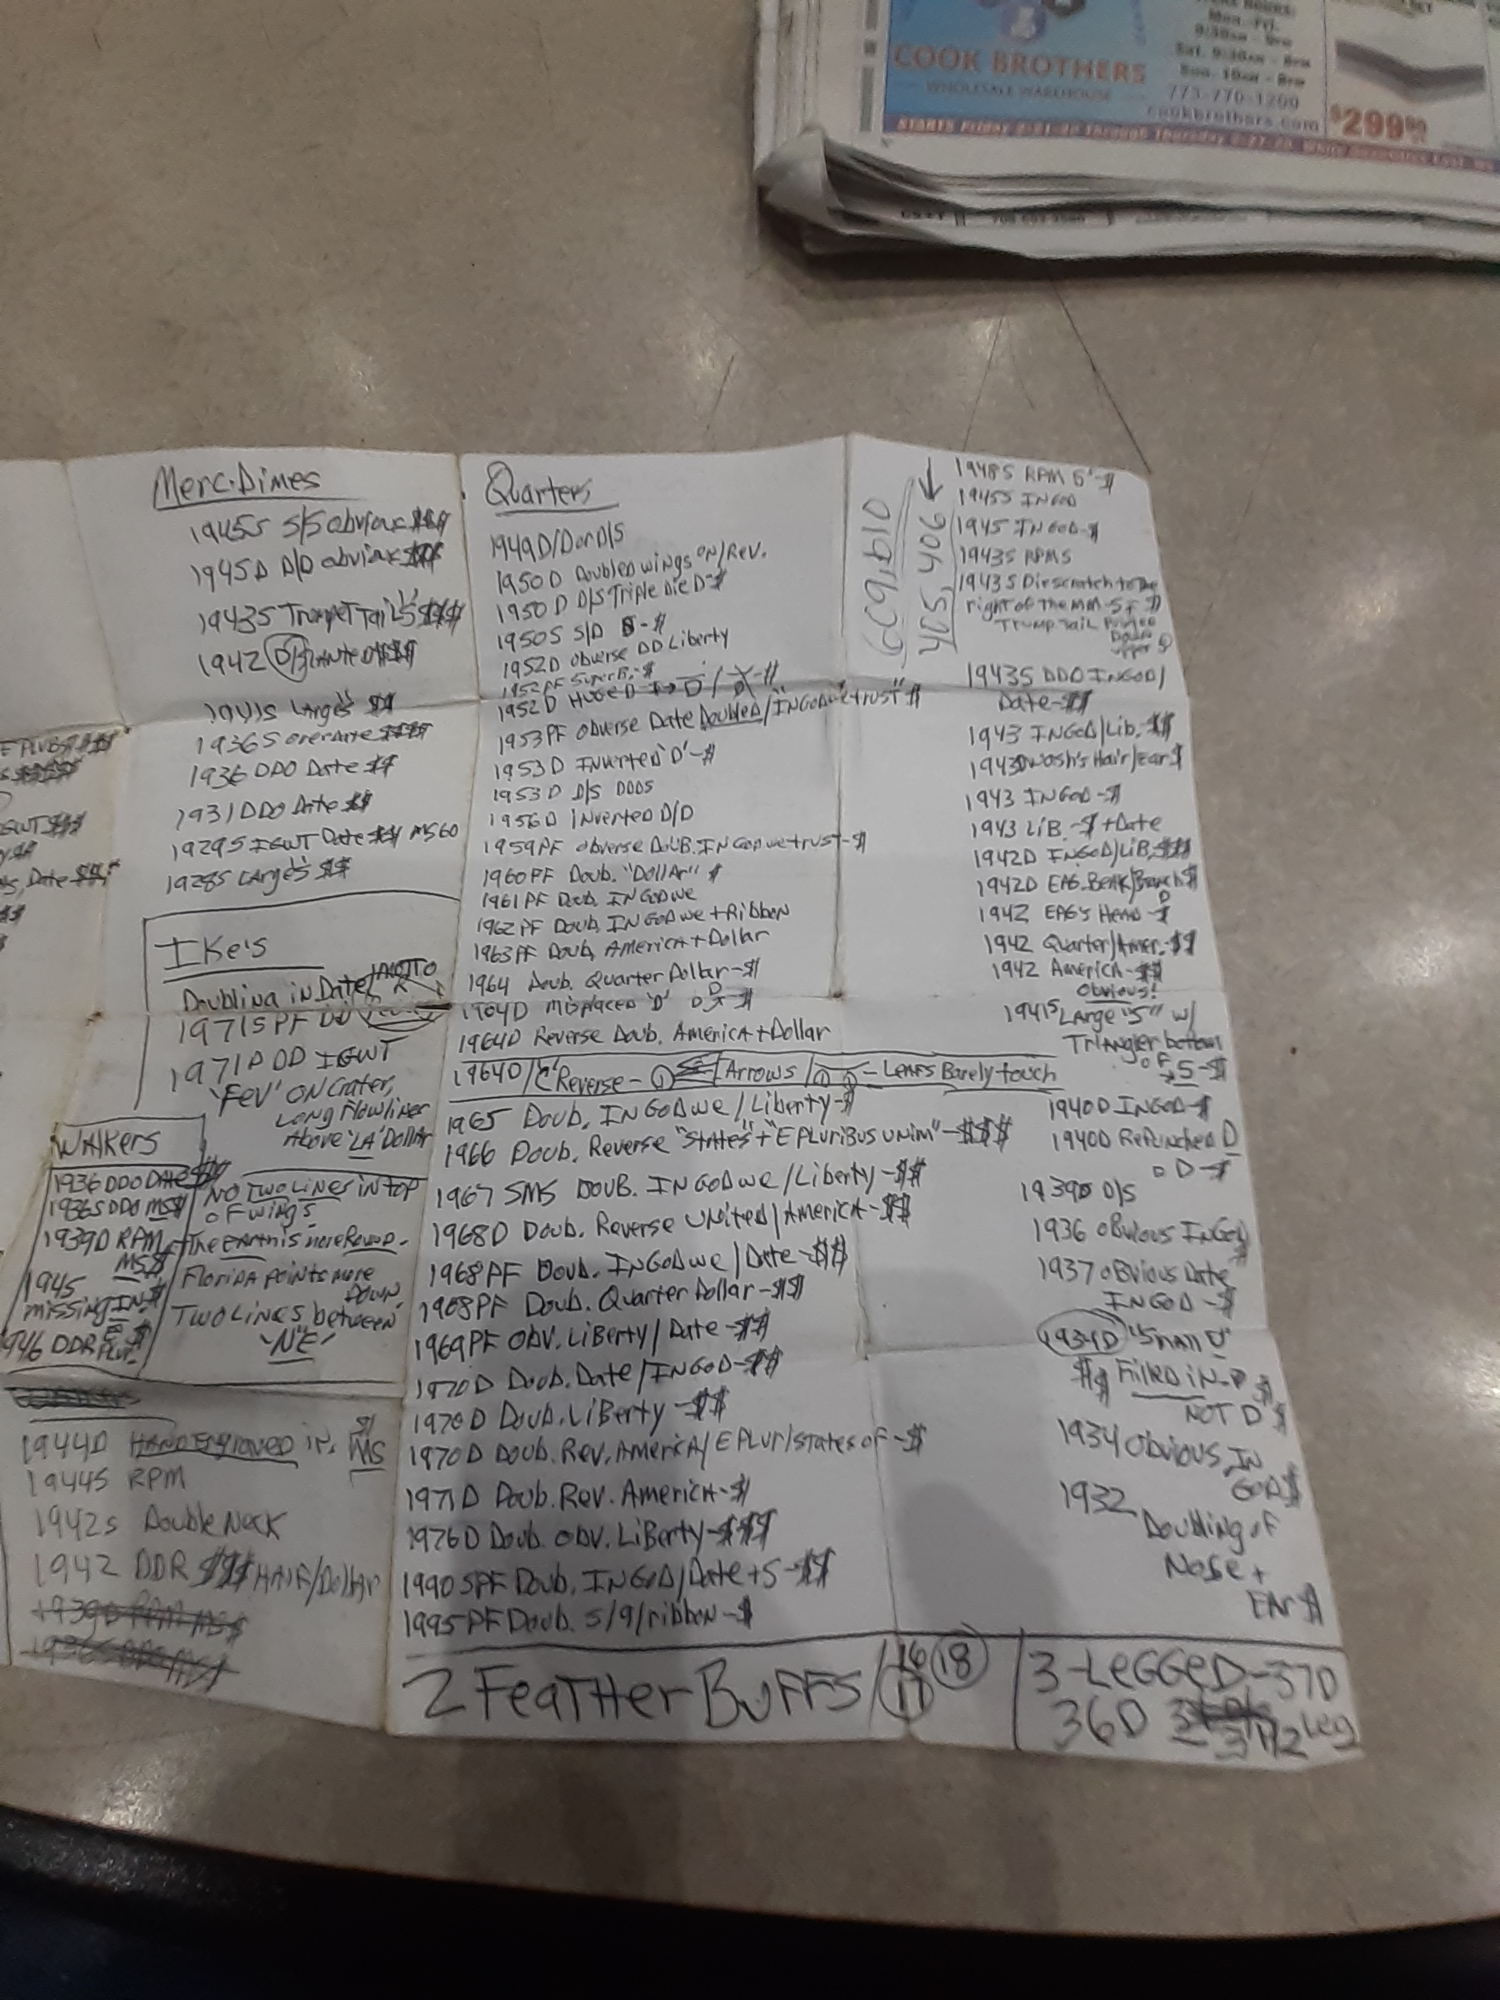 COOK BROTHERS
WHOLESALE WAREHOUSE
Mon.-Fri.
773-770-1200
cookbrothers.com
$299
Merc. Dimes
1945S S/S obvious $$$
1945D D/D obvious $$$
1943S Trumpet Tail 'S' $$$
1942
1941S Large 'S' $$
1936S overdate $$$$
1936 DDO Date $$
1931 DDO Date $$
1929S IGWT Date $$$ MS60
1928S Large 'S' $$
Ike's
Doubling in Date/MOTTO
1971S PF DD
1971D DD IGWT
'FeV' ON Crater,
Long Flowlines
Above 'LA' Dollar
NO Two Lines in top
of wings
The Earth is more Round.
Florida points more
DOWN.
Two Lines between
'NE'
Walkers
1936 DDO DATE $$
1936S DDO MS$
1939D RPM
MS$
1945
missing IN $
1946 DDR E $
Plur.
1944D Hand Engraved in. $ MS
1944S RPM
1942S Double Neck
1942 DDR $$$ HALF/Dollar
1939D RPM MS$
1936S DDO MS$
Quarters
1949D/D or D/S
1950D Doubled wings ON/Rev.
1950D D/S Triple Die D-$
1950S S/D S-$
1952D obverse DD Liberty
1952PF SuperB.-$
1952D HUGE D
1953PF obverse Date Doubled/"IN God we trust" $
1953D Inverted 'D'-$
1953D D/S DDDS
1956D inverted D/D
1959PF obverse DouB. IN God we trust-$
1960PF Doub. "Dollar" $
1961PF Doub. IN GOD we
1962PF Doub. IN GOD we + Ribbon
1963PF Doub. America + Dollar
1964 Doub. Quarter Dollar-$
1964D misplaced 'D'
1964D Reverse Doub. America + Dollar
1964D/'C' Reverse- Arrows/ - Leafs Barely touch
1965 Doub. IN GOD we/Liberty-$
1966 Doub. Reverse "States" + "E Pluribus unim"-$$$
1967 SMS DouB. IN GOD we/Liberty-$$
1968D Doub. Reverse United/America-$$
1968PF Doub. IN GOD we/Date-$$
1968PF Doub. Quarter Dollar-$$
1969PF Obv. LiBerty/Date-$$
1970D Doub. Date/IN GOD-$$
1970D Doub. LiBerty-$$
1970D Doub. Rev. America/E Plur/States of-$
1971D Doub. Rev. America-$
1976D Doub. obv. LiBerty-$$$
1990SPF Doub. IN GOD/Date + S-$$
1995PF Doub. S/9/ribbon-$
2 Feather Buffs/16 17 18
3-Legged-37D
36D 3 1/2 Leg
405,406
1948S RPM S'-$
1945S IN GOD
1945 IN GOD-$
1943S RPMS
1943S Die scratch to the
right of the MM-S + $
Trump Tail Pointed
Down
upper S
1943S DDO IN GOD/
Date-$$
1943 IN GOD/Lib.-$$
1943D Wash's Hair/Ear $
1943 IN GOD-$
1943 LiB.-$ + Date
1942D IN GOD/LiB.$$$
1942D EAG. Beak/Branch $
1942 EAG's Head-$
1942 Quarter/Amer.-$$
1942 America-$$
obvious!
1941S Large "S" w/
Triangler bottom
of S-$
1940D IN GOD-$
1940D Repunched D
D-$
1939D D/S
1936 obvious IN GOD $
1937 obvious Date
IN GOD-$
1934D 'Small D'
$$ Filled iN-D $
NOT D $
1934 Obvious IN
GOD $
1932 Doubling of
Nose +
EAr $